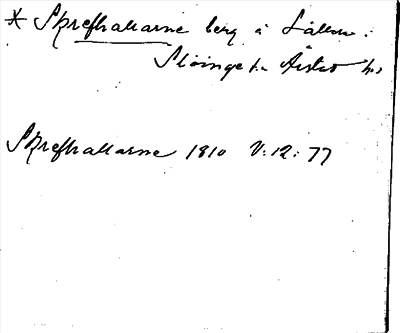 * Skrefhallarne berg å Sållen i
Slöinge sn Årstad hd
Skrefhallarne 1810 V: 12: 77